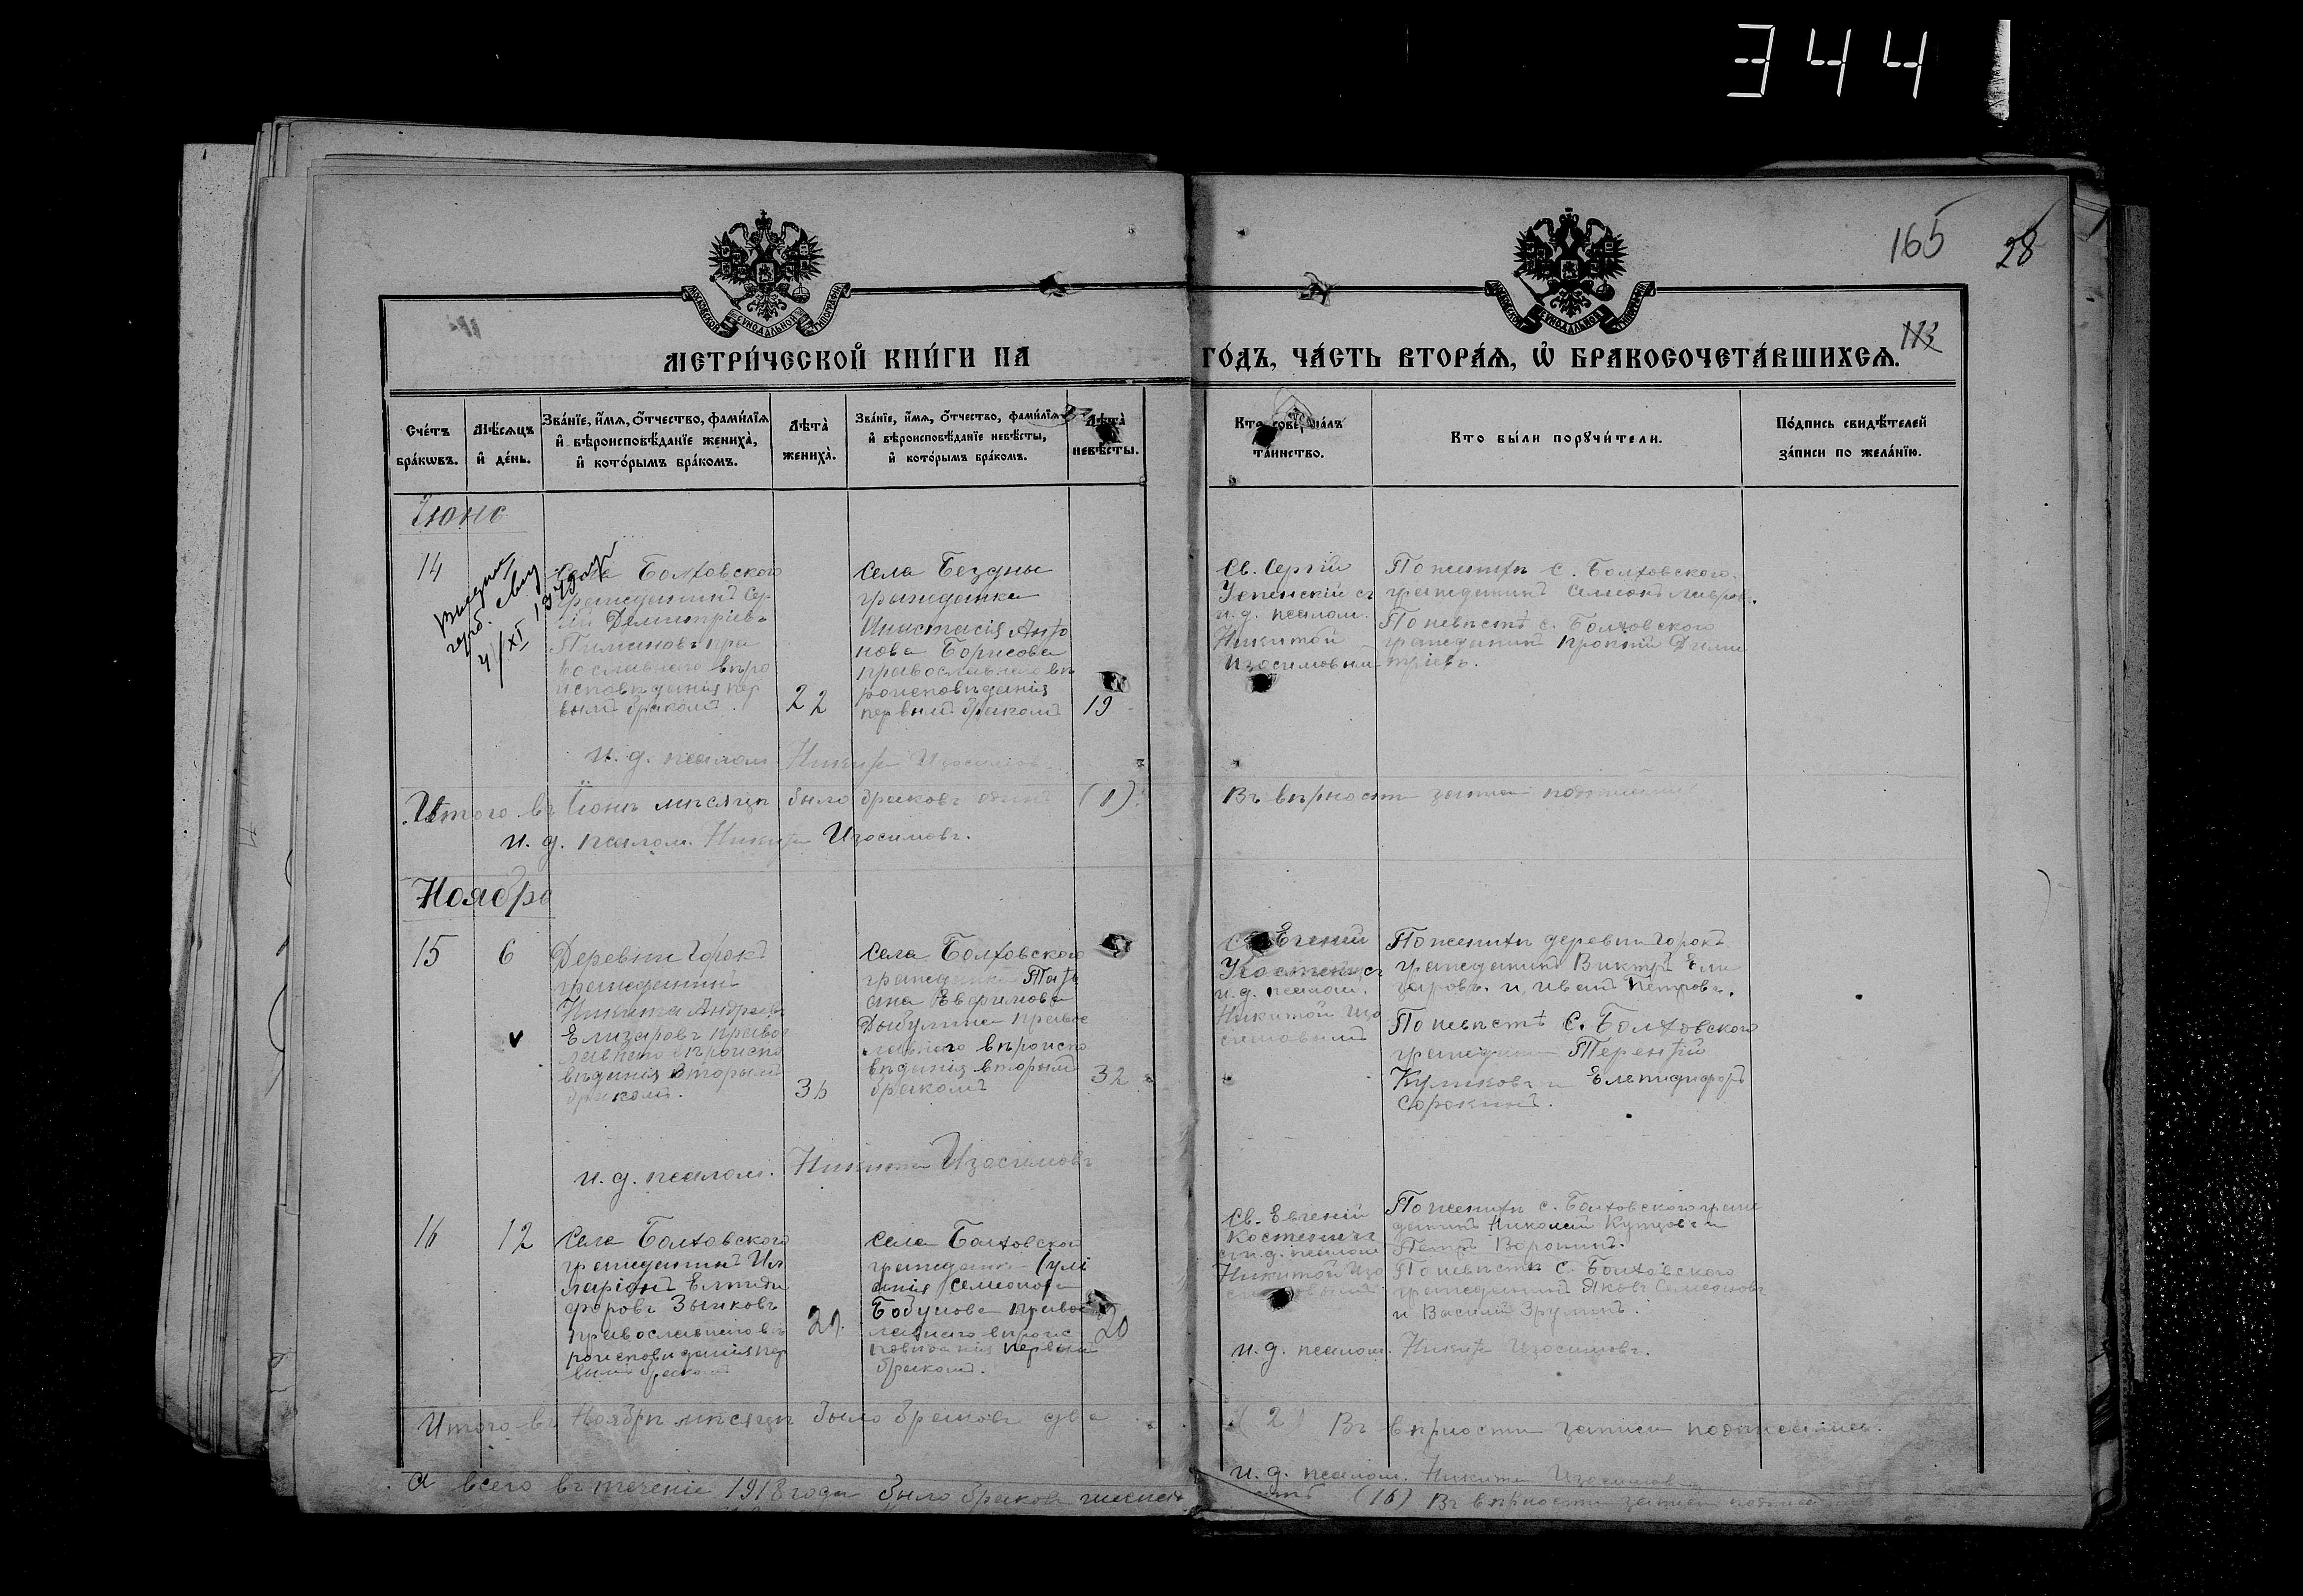 344
165
28
МЕТРИ́ЧЕСКОЙ КНИ́ГИ НА
ГО́ДЪ, ЧА́СТЬ ВТОРА́Я, Ѡ БРАКОСОЧЕТА́ВШИХСЯ.
Сче́тъ бра́кѡвъ.
Мѣ́сяцъ и де́нь.
Зва́нїе, и́мя, о́тчество, фами́лїя
и вѣроисповѣ́данїе жениха̀,
и кото́рымъ бра́комъ.
Лѣта̀ жениха̀.
Зва́нїе, и́мя, о́тчество, фами́лїя
и вѣроисповѣ́данїе невѣ́сты,
и кото́рымъ бра́комъ.
Лѣта̀ невѣ́сты.
Кто̀ соверша́лъ
та́инство.
Кто̀ бы́ли пору́чи́тели.
По́дпись свидѣ́телей
за́писи по жела́нїю.
Іюнь
14
Села Болховского
гражданинъ Сер
гѣй Димитріевъ
Пимановъ пра
вославнаго вѣро
исповѣданія пер
вымъ бракомъ.
22
Села Бездны
гражданка
Анастасія Анто
нова Борисова
православнаго вѣ
роисповѣданія
первымъ бракомъ
19
Св. Сергій
Успенскій съ
и. д. псалом.
Никитой
Изосимовым
По женихѣ с. Болховского
гражданинъ Семенъ Лавровъ.
По невѣстѣ с. Болховского
гражданинъ Прокпій Дими
тріевъ.
и. д. псалом. Никита Изосимовъ
Итого въ Іюнѣ мѣсяцѣ было браковъ одинъ (1).
Въ вѣрности записи подписался
и. д. псалом. Никита Изосимовъ.
Ноябрь
15
6
Деревни Горокъ
гражданинъ
Никита Андреевъ
Елизаровъ правос
лавнаго вѣроиспо
вѣданія вторымъ
бракомъ.
Села Болховского
гражданка Тать
яна Евфимова
православнаго вѣроиспо
вѣданія вторымъ
бракомъ
32
Евгеній
и. д. псалом.
Никитой Изо
симовымъ
По женихѣ деревни Горокъ
гражданинъ Викторъ Ели
заровъ. и Иванъ Петровъ.
По невѣстѣ с. Болховского
гражданинъ Терентій
Куликовъ и Елпидифоръ
Сорокинъ.
и. д. псалом. Никита Изосимовъ
16
12
Села Болховского
гражданинъ Ил
ларіонъ Елпиди
форовъ Зыковъ
православнаго вѣ
роисповѣданія пер
вымъ бракомъ
Села Болховского
гражданка Іулі
анія Семенова
Бобунова правос
лавнаго вѣроис
повѣданія первымъ
бракомъ.
20
Св. Евгеній
съ и. д. псалом
Никитой Изо
симовымъ
По женихѣ с. Болховского граж
данинъ Николай Купцовъ и
Петръ Воронинъ.
По невѣстѣ с. Болховского
гражданинъ Яковъ Семеновъ
и Василій
и. д. псалом. Никита Изосимовъ.
Итого въ Ноябрѣ мѣсяцѣ было браковъ два (2) Въ вѣрности записи подписались.
и. д. псалом. Никита Изосимовъ
А всего въ теченіе 1918 года было браковъ шестнадцать (16) Въ вѣрности записи